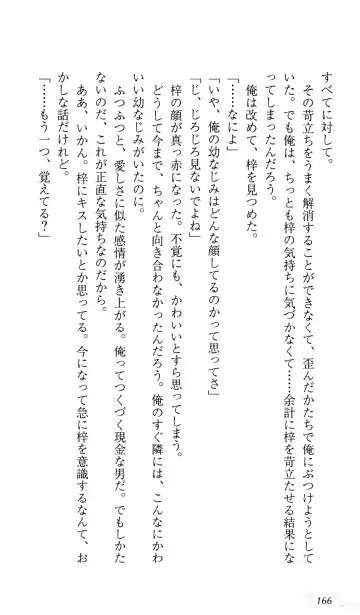 すべてに対して。
　その苛立ちをうまく解消することができなくて、歪んだかたちで俺にぶつけようとして
いた。でも俺は、ちっとも梓の気持ちに気づかなくて……余計に梓を苛立たせる結果にな
ってしまったんだろう。
　俺は改めて、梓を見つめた。
「……なによ」
「いや、俺の幼なじみはどんな顔してるのかって思ってさ」
「じ、じろじろ見ないでよね」
　梓の顔が真っ赤になった。不覚にも、かわいいとすら思ってしまう。
　どうして今まで、ちゃんと向き合わなかったんだろう。俺のすぐ隣には、こんなにかわ
いい幼なじみがいたのに。
　ふつふつと、愛しさに似た感情が湧き上がる。俺ってつくづく現金な男だ。でもしかた
ないのだ、これが正直な気持ちなのだから。
　ああ、いかん。梓にキスしたいとか思ってる。今になって急に梓を意識するなんて、お
かしな話だけれど。
「……もう一つ、覚えてる？」
166